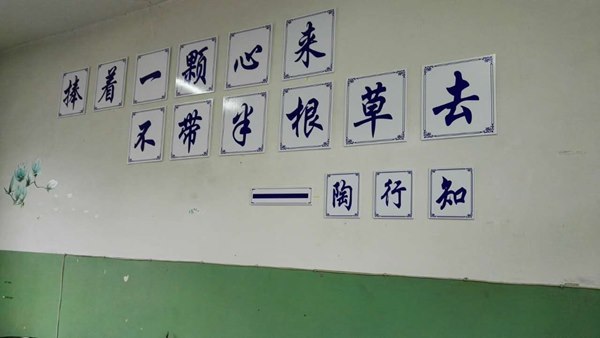 捧着一颗心来
不带半根草去
——陶行知